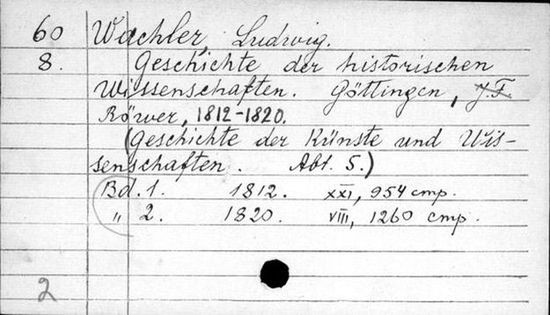 60 Wachler, Ludwig.
8. Geschichte der historischen
Wissenschaften. Göttingen, J.F.
Röwer, 1812-1820.
(Geschichte der Künste und Wis-
senschaften. Abt. 5.)
Bd. 1. 1812. XXI, 954 стр.
" 2. 1820. VIII, 1260 стр.
2